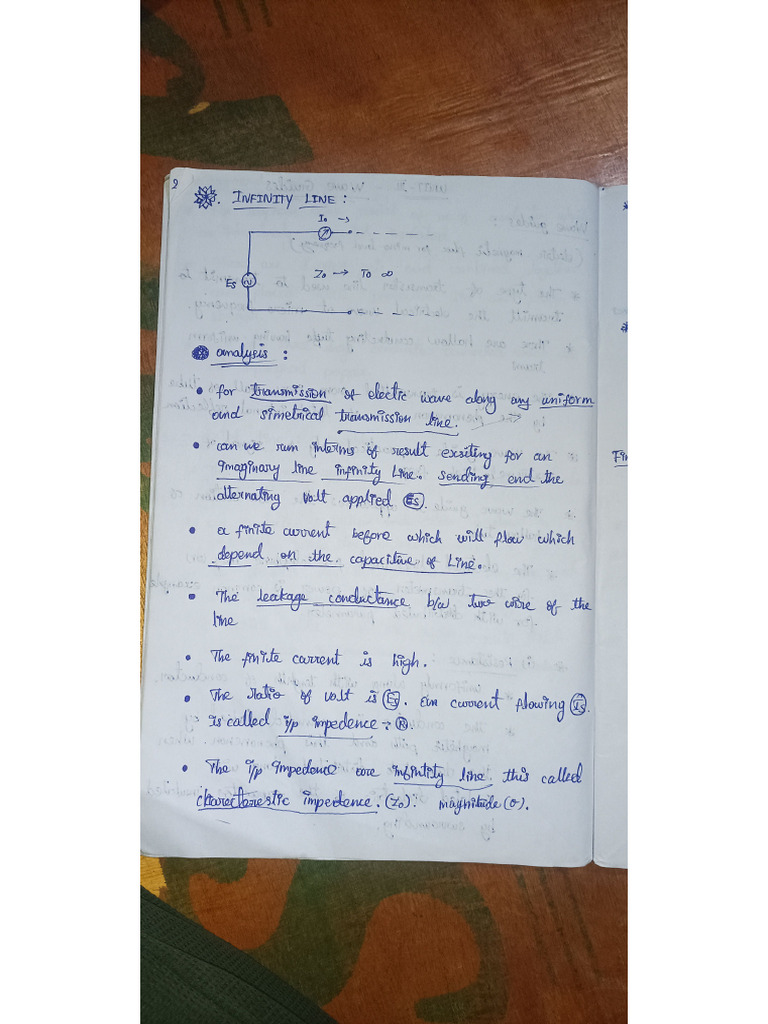 2
INFINITY LINE :
I₀ →
Z₀ → To ∞
Es
analysis :
• for transmission of electic wave along any uniform
and simetrical transmission line.
• can we run interms of result exsiting for an
imaginary line infinity line. sending end the
alternating volt applied Es.
• a finite current before which will flow which
depend on the capacitive of Line.
• The leakage conductance b/w two wire of the
line
• The finite current is high.
• The ratio of volt is Es. current flowing Is.
is called i/p impedence :- R.
• The i/p impedence are infintity line. this called
charecterestic impedence. (Z₀). magnitude (σ).
Fin